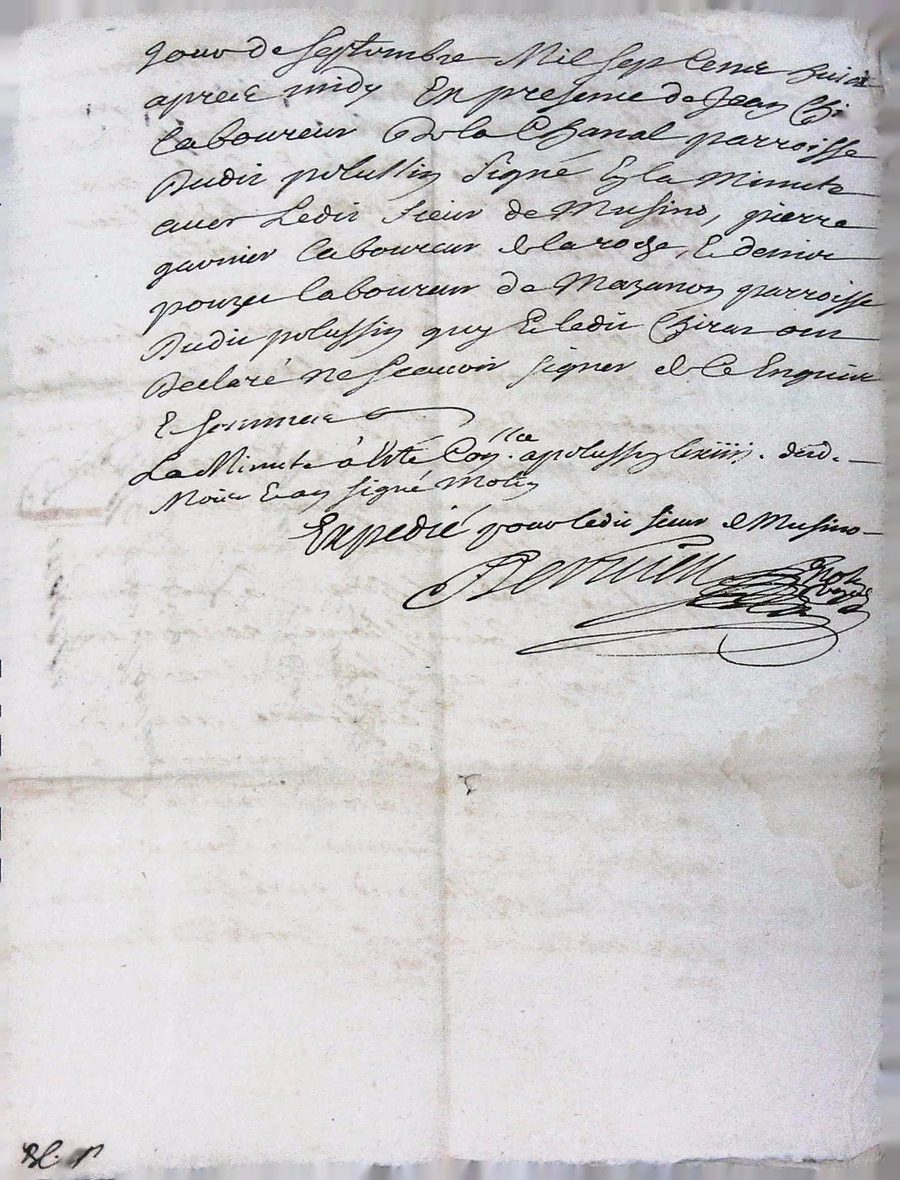 jour de Septembre Mil sept Cents huict
apres midy En presence de Jean Chi
laboureur de la Chanal parroisse
Dudit polussin Signé En la Minute
avec Ledit sieur de Musino, pierre
garnier laboureur de la roche, & denis
pouzet laboureur de Mazanon parroisse
Dudit polussin quy & ledit Chirat ont
Declaré ne scavoir signer de Ce Enquis
& sommés
La Minute a Esté Con.llee a polussin le xiiii. dud.
Mois & an signé Molin
Expedié pour ledit sieur de Musino